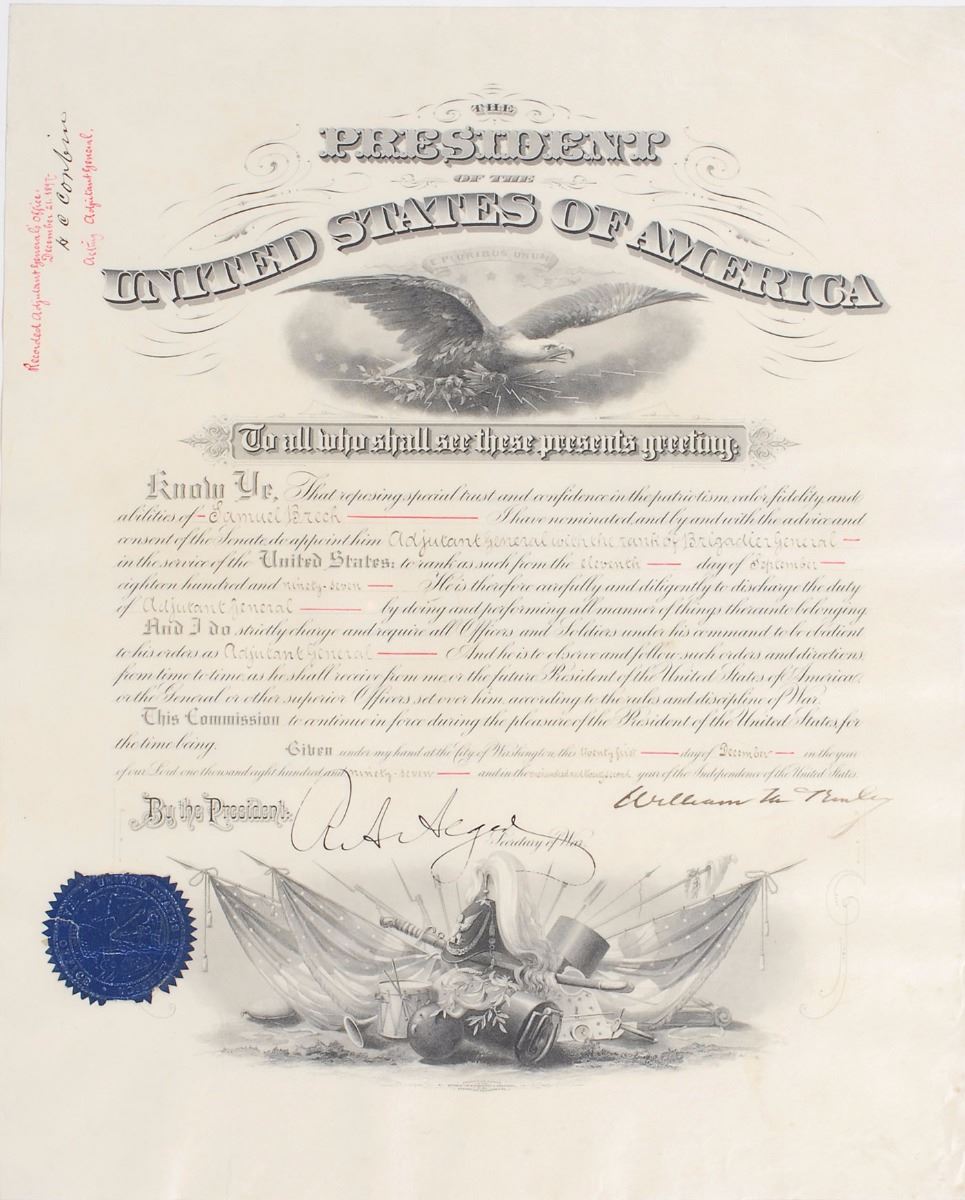 Recorded Adjutant General's Office.
December 21. 1897.
H C Corbin
Acting Adjutant General.
THE
PRESIDENT
OF THE
UNITED STATES OF AMERICA
E PLURIBUS UNUM
To all who shall see these presents greeting:
Know Ye, That reposing special trust and confidence in the patriotism, valor, fidelity and
abilities of Samuel Breck I have nominated, and by and with the advice and
consent of the Senate do appoint him Adjutant General with the rank of Brigadier General
in the service of the United States: to rank as such from the eleventh day of September
eighteen hundred and ninety-seven He is therefore carefully and diligently to discharge the duty
of Adjutant General by doing and performing all manner of things thereunto belonging.
And I do strictly charge and require all Officers and Soldiers under his command to be obedient
to his orders as Adjutant General And he is to observe and follow such orders and directions,
from time to time, as he shall receive from me, or the future President of the United States of America,
or the General or other superior Officers set over him, according to the rules and discipline of War.
This Commission to continue in force during the pleasure of the President of the United States, for
the time being. Given under my hand at the City of Washington, this day of December in the year
of our Lord one thousand eight hundred and ninety-seven and in the one hundred and twenty second year of the Independence of the United States.
By the President: R A Alger William McKinley
Secretary of War.